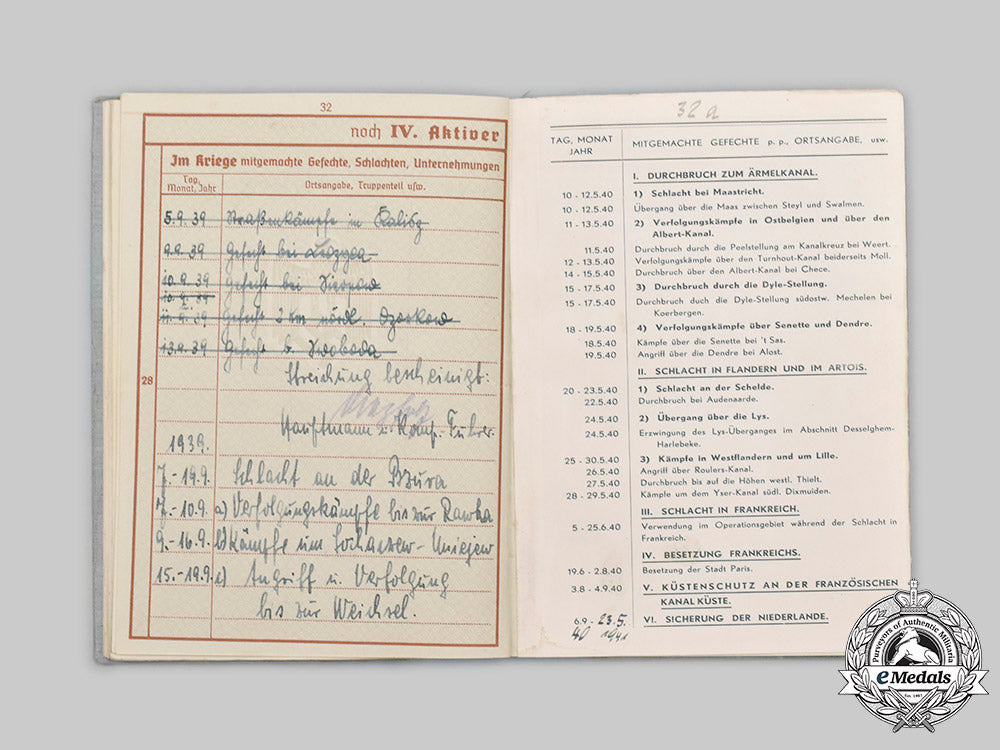 32
noch IV. Aktiver
Im Kriege mitgemachte Gefechte, Schlachten, Unternehmungen
Tag, Monat, Jahr
Ortsangabe, Truppenteil usw.
5.9.39 Straßenkämpfe in Kalisz
9.9.39 Gefecht bei
10.9.39 Gefecht bei
10.9.39
11.9.39 Gefecht 2 km nördl. Ozorkow
13.9.39 Gefecht b. Swoboda
Streichung bescheinigt:
Hauptmann u. Komp. Führer.
28
1939.
7.-19.9. Schlacht an der Bzura
7.-10.9. a) Verfolgungskämpfe bis zur Rawka
9.-16.9. b) Kämpfe um Sochaczew-Uniejew
15.-19.9. c) Angriff u. Verfolgung
bis zur Weichsel.
32a
TAG, MONAT JAHR
MITGEMACHTE GEFECHTE p. p., ORTSANGABE, usw.
I. DURCHBRUCH ZUM ÄRMELKANAL.
10 - 12.5.40 1) Schlacht bei Maastricht.
10 - 12.5.40 Übergang über die Maas zwischen Steyl und Swalmen.
11 - 13.5.40 2) Verfolgungskämpfe in Ostbelgien und über den
Albert-Kanal.
11.5.40 Durchbruch durch die Peelstellung am Kanalkreuz bei Weert.
12 - 13.5.40 Verfolgungskämpfe über den Turnhout-Kanal beiderseits Moll.
14 - 15.5.40 Durchbruch über den Albert-Kanal bei Chece.
15 - 17.5.40 3) Durchbruch durch die Dyle-Stellung.
15 - 17.5.40 Durchbruch duch die Dyle-Stellung südostw. Mechelen bei
Koerbergen.
18 - 19.5.40 4) Verfolgungskämpfe über Senette und Dendre.
18.5.40 Kämpfe über die Senette bei 't Sas.
19.5.40 Angriff über die Dendre bei Alost.
II. SCHLACHT IN FLANDERN UND IM ARTOIS.
20 - 23.5.40 1) Schlacht an der Schelde.
22.5.40 Durchbruch bei Audenaarde.
24.5.40 2) Übergang über die Lys.
24.5.40 Erzwingung des Lys-Überganges im Abschnitt Desselghem-
Harlebeke.
25 - 30.5.40 3) Kämpfe in Westflandern und um Lille.
26.5.40 Angriff über Roulers-Kanal.
27.5.40 Durchbruch bis auf die Höhen westl. Thielt.
28 - 29.5.40 Kämpfe um den Yser-Kanal südl. Dixmuiden.
III. SCHLACHT IN FRANKREICH.
5 - 25.6.40 Verwendung im Operationsgebiet während der Schlacht in
Frankreich.
IV. BESETZUNG FRANKREICHS.
19.6 - 2.8.40 Besetzung der Stadt Paris.
3.8 - 4.9.40 V. KÜSTENSCHUTZ AN DER FRANZÖSISCHEN
KANALKÜSTE.
6.9 - 23.5. VI. SICHERUNG DER NIEDERLANDE.
40 1941
Purveyors of Authentic Militaria
eMedals